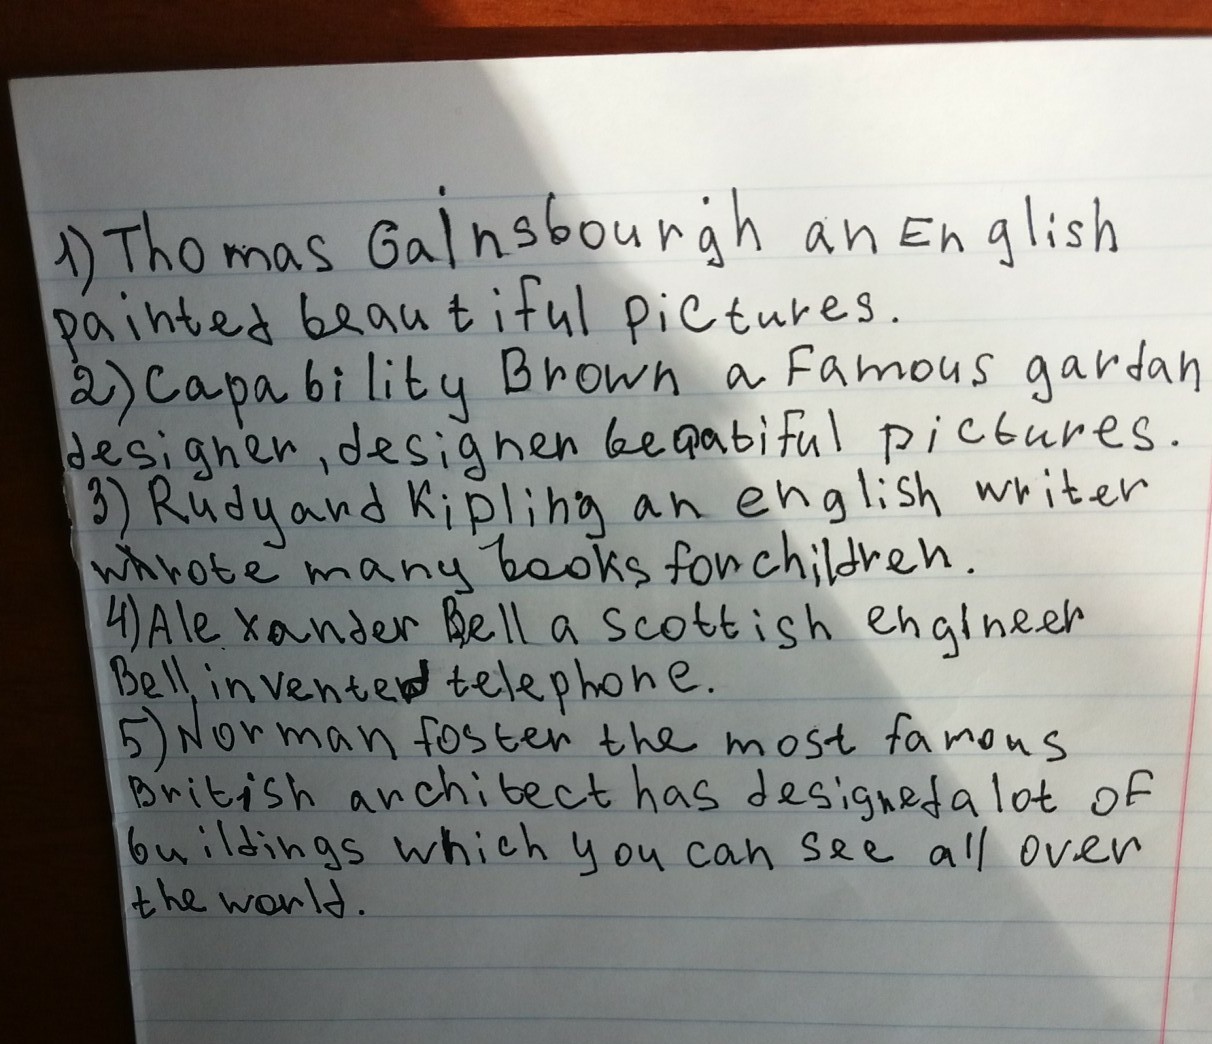 1) Thomas Gainsbourgh an English
painted beautiful pictures.
2) Capability Brown a Famous gardan
designer, designer beqatiful pictures.
3) Rudyand Kipling an english writer
whrote many books for children.
4) Alexander Bell a scottish engineer
Bell, invented telephone.
5) Norman foster the most famous
British architect has designed a lot of
buildings which you can see all over
the world.